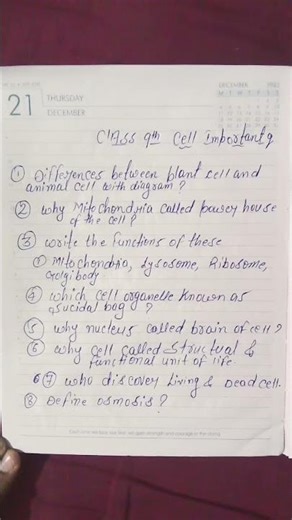 21
THURSDAY
DECEMBER
DECEMBER
Class 9th Cell Important q
① Differences between plant cell and
animal cell with diagram?
② why Mitochondria called power house
of the cell?
③ write the functions of these
① Mitochondria, Lysosome, Ribosome,
Golgibody
④ which cell organelle known as
sucidal bag ?
⑤ why nucleus called brain of cell?
⑥ why cell called Structual &
functional unit of life
6 ⑦ who discovery living & Dead cell.
⑧ Define osmosis?